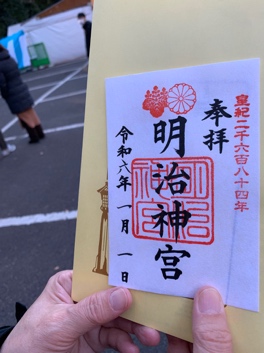 皇紀二千六百八十四年
奉拝
明治神宮
令和六年一月一日